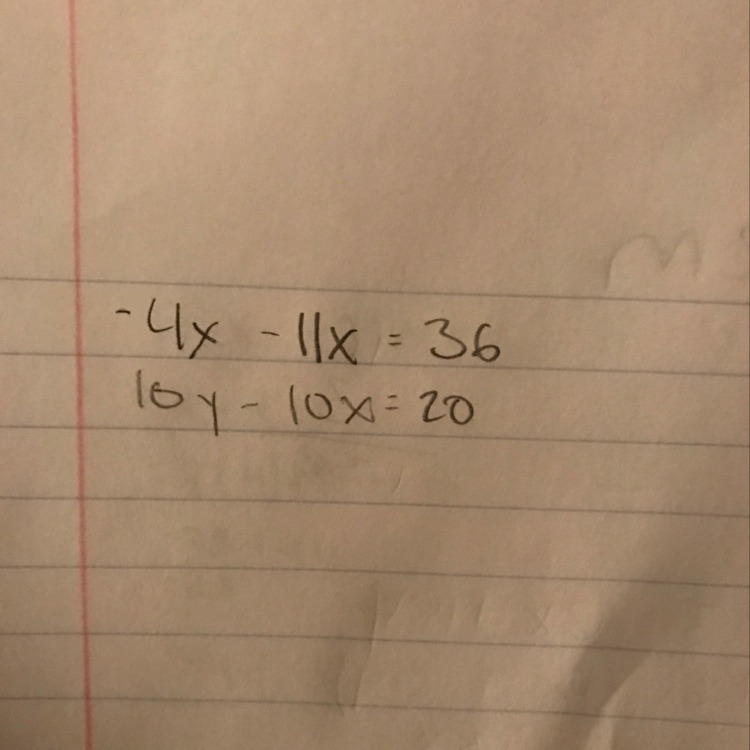 -4x - 11x = 36
10y - 10x = 20